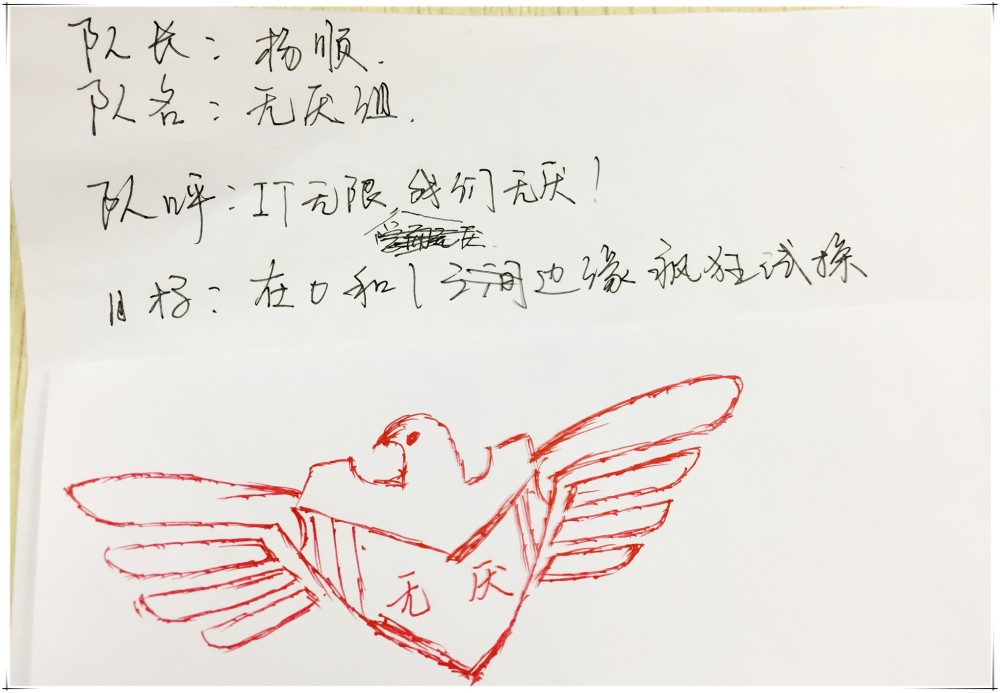 队长：杨顺.
队名：无厌组.
队呼：IT无限，我们无厌！
目标：在0和1之间边缘疯狂试探
无厌